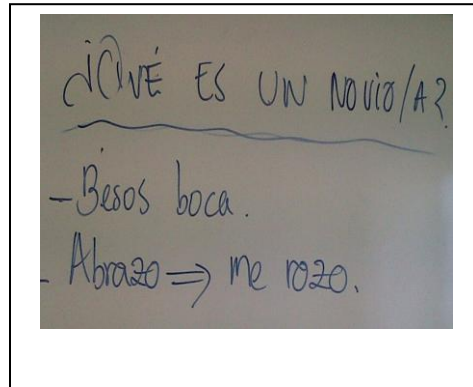 ¿QUÉ ES UN NOVIO/A?
- Besos boca.
- Abrazo ⇒ me rozo.